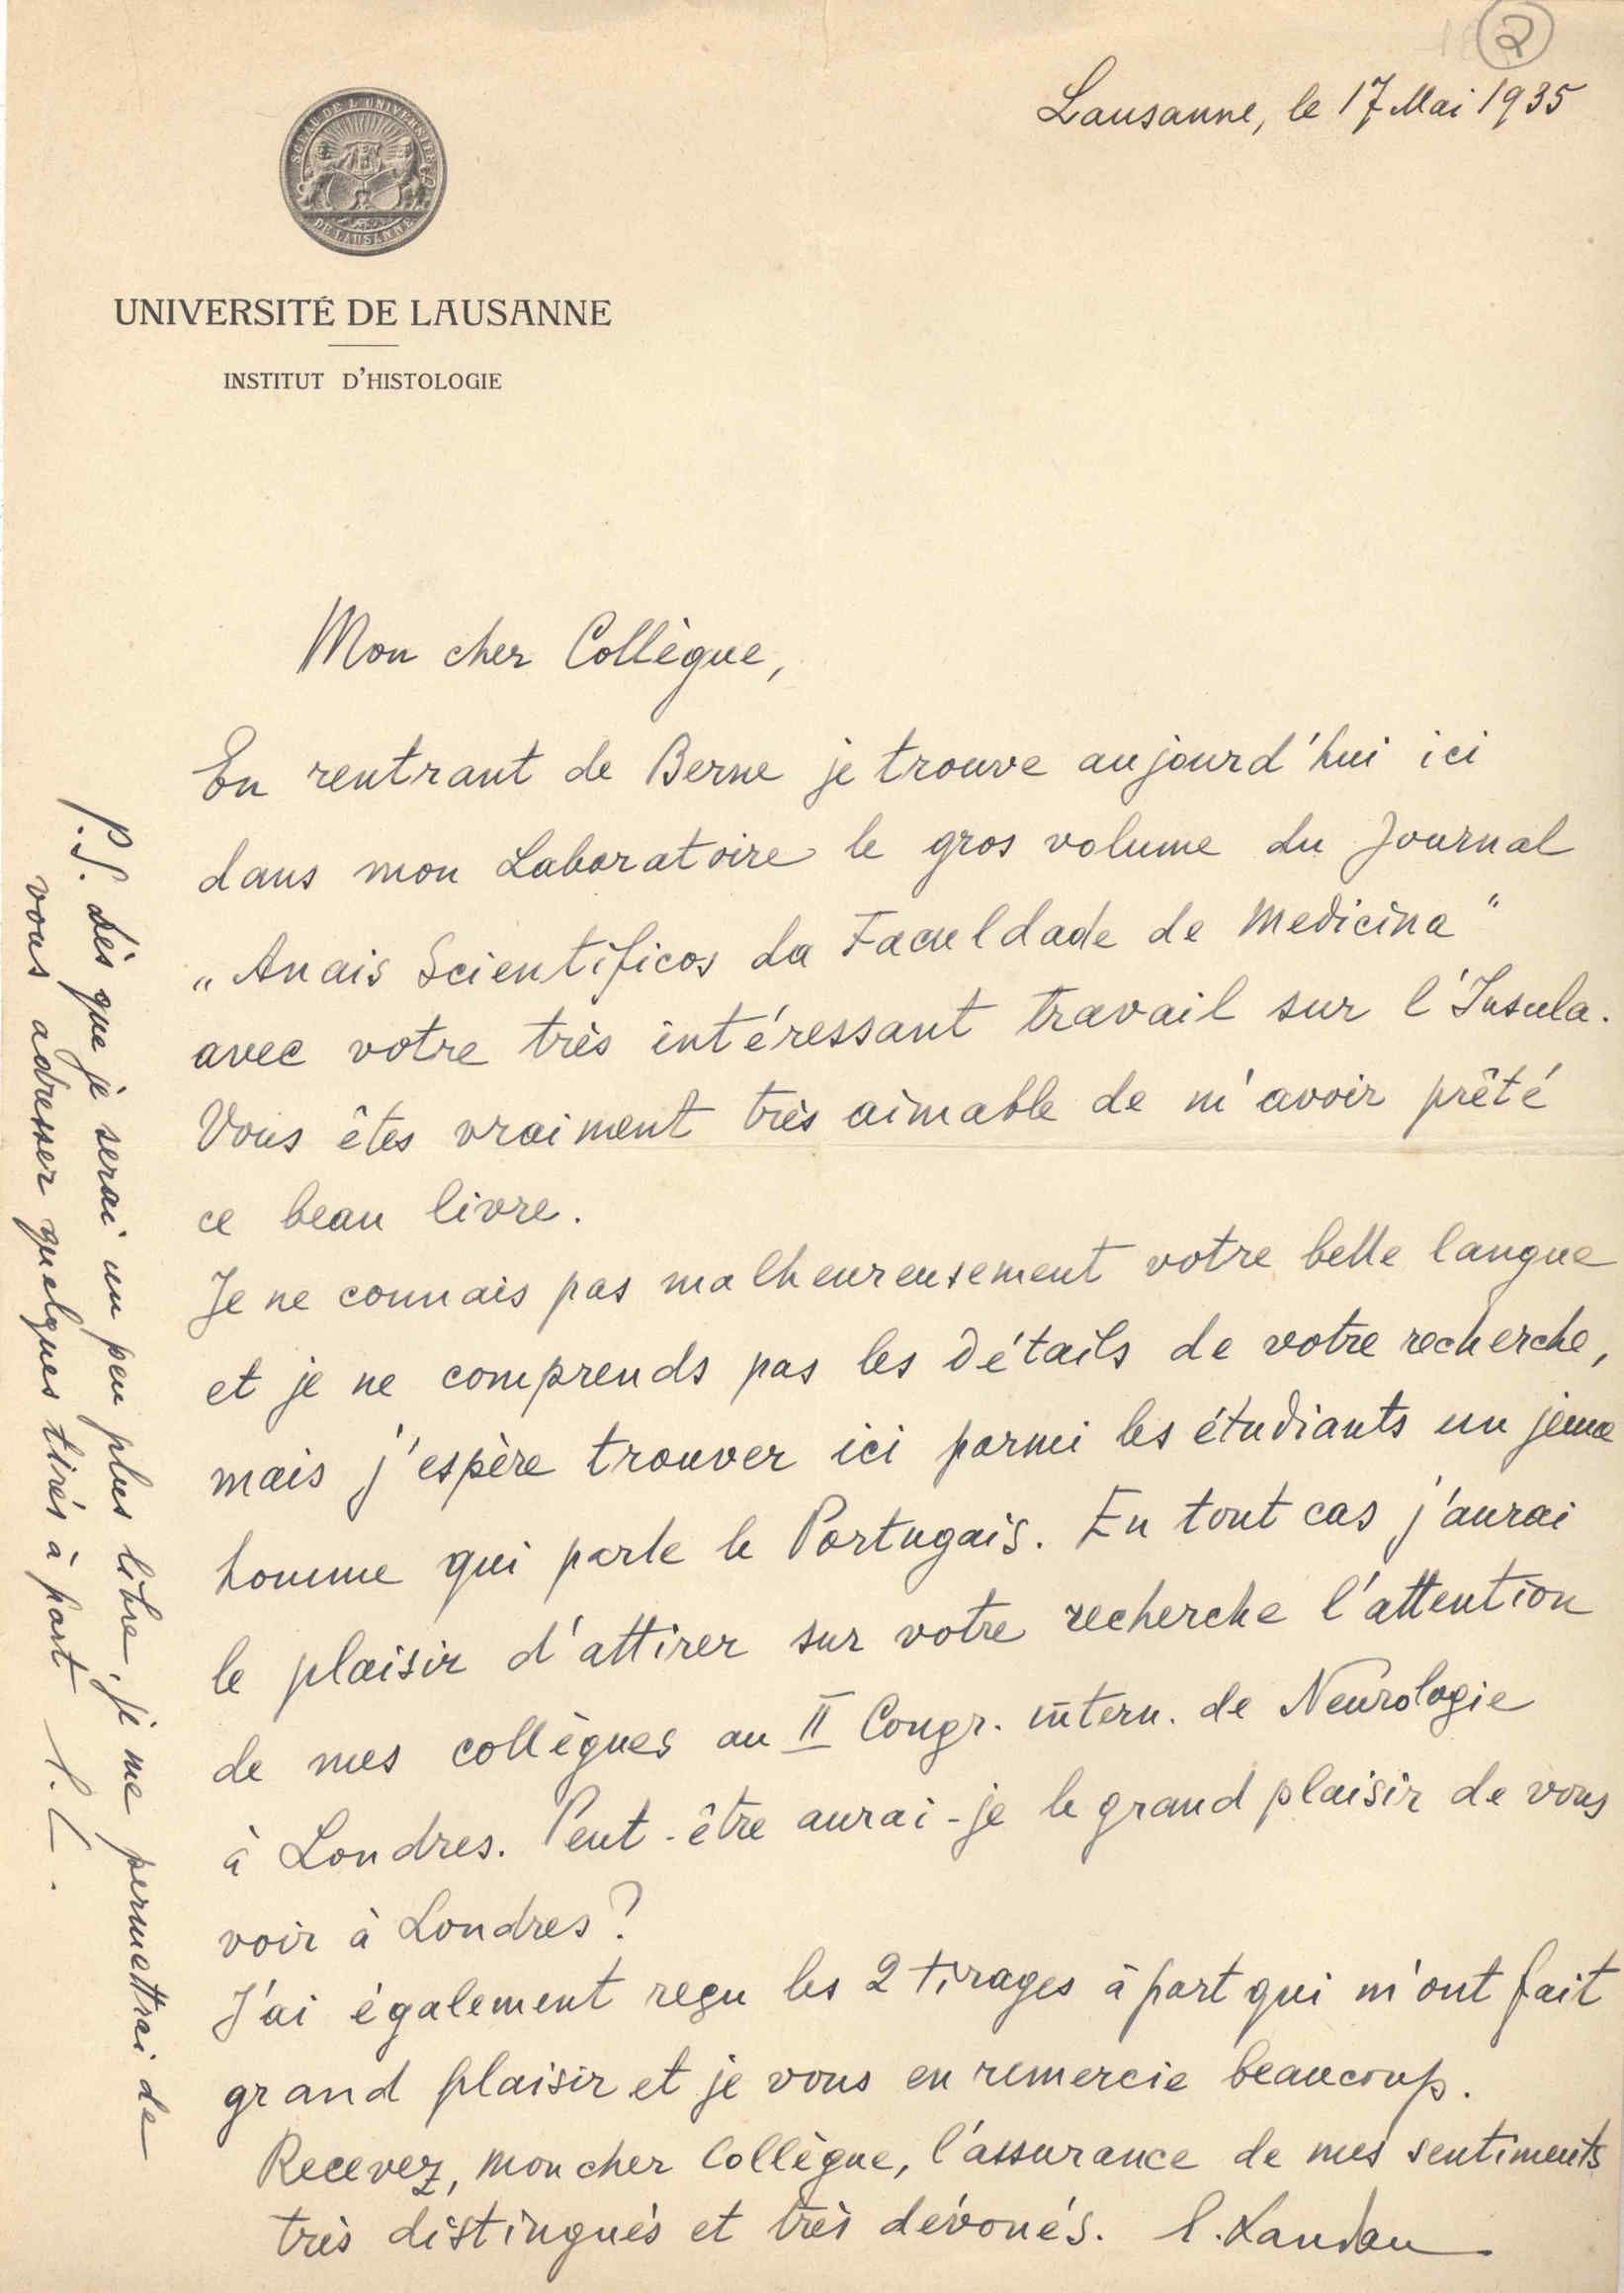 2
Lausanne, le 17 Mai 1935
SCEAU DE L'UNIVERSITÉ
DE LAUSANNE
UNIVERSITÉ DE LAUSANNE
INSTITUT D'HISTOLOGIE
Mon cher Collègue,
En rentrant de Berne je trouve aujourd'hui ici
dans mon Laboratoire le gros volume du Journal
„Anais Scientificos da Faculdade de Medicina"
avec votre très intéressant travail sur l'Insula.
Vous êtes vraiment très aimable de m'avoir prêté
ce beau livre.
Je ne connais pas malheureusement votre belle langue
et je ne comprends pas les détails de votre recherche,
mais j'espère trouver ici parmi les étudiants un jeune
homme qui parle le Portugais. En tout cas j'aurai
le plaisir d'attirer sur votre recherche l'attention
de mes collègues au II Congr. intern. de Neurologie
à Londres. Peut-être aurai-je le grand plaisir de vous
voir à Londres?
J'ai également reçu les 2 tirages à part qui m'ont fait
grand plaisir et je vous en remercie beaucoup.
Recevez, mon cher Collègue, l'assurance de mes sentiments
très distingués et très dévoués. E. Landau
P.S. Dès que je serai un peu plus libre, je me permettrai de
vous adresser quelques tirés à part E.L.